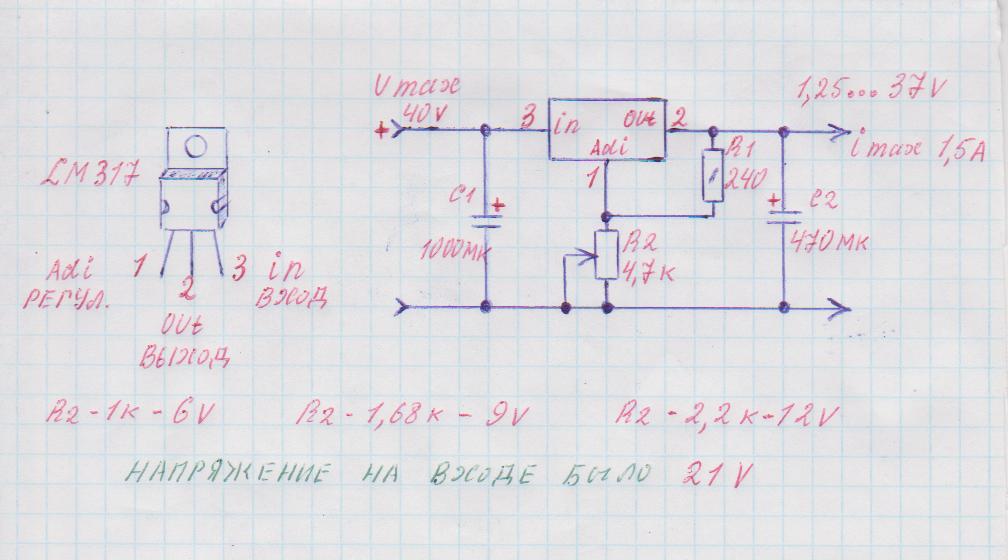 LM317
Adi 1 3 in
РЕГУЛ. 2 ВХОД
OUt
ВЫХОД
Vmax
40V
+
3 in OUt 2
Adi
1
1,25... 37V
i max 1,5A
R1
240
C1 +
1000мк
R2
4,7к
+ C2
470мк
R2 - 1к - 6V R2 - 1,68к - 9V R2 - 2,2к - 12V
НАПРЯЖЕНИЕ НА ВХОДЕ БЫЛО 21V